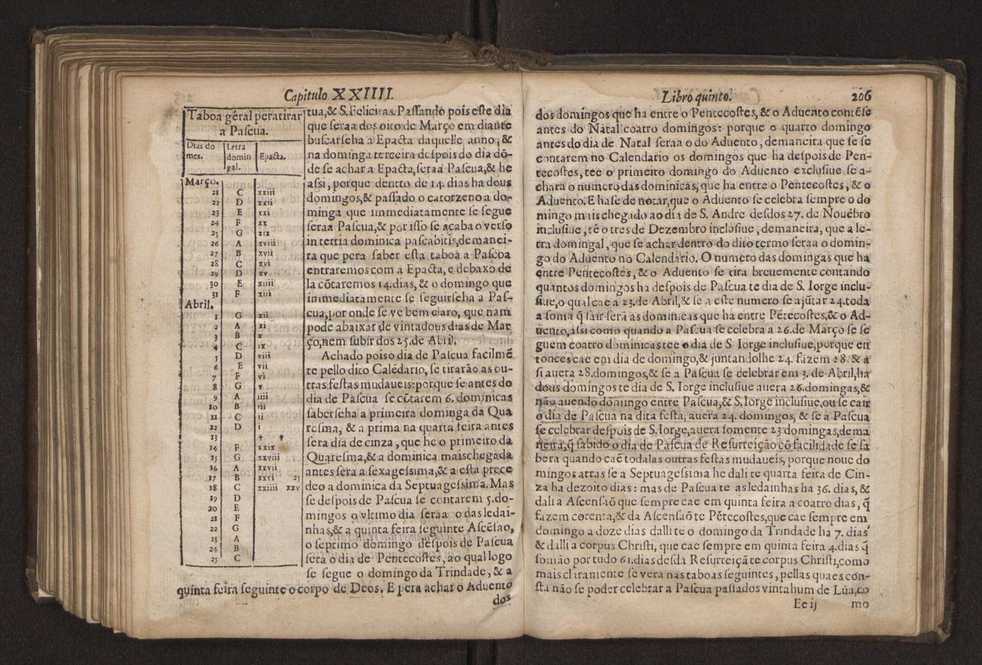 Capitulo XXIIII.
Taboa géral peratirar
a Pascua.
Dias do mes. Letra domingal. Epacta.
Março.
21 C xxiii
22 D xxii
23 E xxi
24 F xx
25 G xix
26 A xviii
27 B xvii
28 C xvi
29 D xv
30 E xiiii
31 F xiii
Abril.
1 G xii
2 A xi
3 B x
4 C ix
5 D viii
6 E vii
7 F vi
8 G v
9 A iiii
10 B iii
11 C ii
12 D i
13
14 F xxix
15 G xxviii
16 A xxvii
17 B xxvi 25
18 C xxiiii xxv
19 D
20 E
21 F
22 G
23 A
26 B
25 C
tua,& S.Felicitas. Passando pois este dia
que seraa dos oito de Março em diante
buscarseha a Epacta daquelle anno, &
na dominga terceira despois do dia dõ-
de se achar a Epacta, seraa Pascua,& he
assi, porque dentro de 14. dias ha dous
domingos,& passado o catorzeno a do-
minga que immediatamente se segue
seraa Pascua,& por isso se acaba o verso
in tertia dominica pascabitis,demanei-
ra que pera saber esta taboa a Pascoa
entraremos com a Epacta,& debaxo de
la cõtaremos 14.dias,& o domingo que
immediatamente se seguirseha a Pas-
cua,por onde se ve bem claro, que nam
pode abaixar de vintadous dias de Mar
ço,nem subir dos 25.de Abril.
Achado pois o dia de Pascua facilmẽ
te pello dico Calẽdario, se tirarão as ou-
tras festas mudaueis: porque se antes do
dia de Pascua se cõtarem 6. dominicas
saberseha a primeira dominga da Qua
resma, & a prima na quarta feira antes
sera dia de cinza, que he o primeiro da
Quaresma,& a dominica mais chegada
antes sera a sexagessima,& a esta prece
deo a dominica da Septuagessima. Mas
se despois de Pascua se contarem 5.do-
mingos o vltimo dia seraa o das ledai-
nhas,& a quinta feira seguinte Ascẽsao,
o septimo domingo despois de Pascua
serà o dia de Pentecostes, ao qual logo
se segue o domingo da Trindade, & a
quinta feira seguinte o corpo de Deos. E pera achar o Aduento
dos
Libro quinto. 206
dos domingos que ha entre o Pentecostes, & o Aduento contẽse
antes do Natal coatro domingos: porque o quarto domingo
antes do dia de Natal seraa o do Aduento, demaneira que se se
contarem no Calendario os domingos que ha despois de Pen-
tecostes, tee o primeiro domingo do Aduento exclusiue se a-
chara o numero das dominicas, que ha entre o Pentecostes, & o
Aduento. E hase de notar, que o Aduento se celebra sempre o do
mingo mais chegado ao dia de S. Andre desdos 27. de Nouẽbro
inclusiue, tẽ o tres de Dezembro inclusiue, demaneira, que a le-
tra domingal, que se achar dentro do dito termo seraa o domin-
go do Aduento no Calendario. O numero das domingas que ha
entre Pentecostes, & o Aduento se tira breuemente contando
quantos domingos ha despois de Pascua te dia de S. Iorge inclu-
siue,o qual cae a 23.de Abril,& se a este numero se ajũtar 24.toda
a soma q̃ sair serà as dominicas que ha entre Pẽtecostes,& o Ad-
uento,assi como quando a Pascua se celebra a 26.de Março se se
guem coatro dominicas tee o dia de S. Iorge inclusiue,porque en
tonces cae em dia de domingo,& juntandolhe 24. fazem 28. & a
si auera 28.domingos,& se a Pascua se celebrar em 3. de Abril,ha
dous domingos te dia de S. Iorge inclusiue auera 26.domingas,&
não auendo domingo entre Pascua,& S.Iorge inclusiue,ou se cair
o dia de Pascua na dita festa, auera 24. domingos, & se a Pascua
se celebrar despois de S.Iorge,auera somente 23 domingas,dema
neira,q̃ sabido o dia de Pascua de Resurreição cõ facilidade se sa
bera quando caẽ todalas outras festas mudaueis, porque noue do
mingos atras se a Septuagessima he dali te quarta feira de Cin-
za ha dezoito dias: mas de Pascua te as ledainhas ha 36. dias, &
dali a Ascensaõ que sempre cae em quinta feira a coatro dias, q̃
fazem corenta,& da Ascensaõ te Pẽtecostes,que cae sempre em
domingo a doze dias dalli te o domingo da Trindade ha 7. dias
& dalli a corpus Christi, que cae sempre em quinta feira 4.dias q̃
somão por tudo 61.dias desda Resurreiçã te corpus Christi,como
mais claramente se vera nas taboas seguintes, pellas quaes con-
sta não se poder celebrar a Pascua passados vinta hum de Lũa,co
Ee ij mo